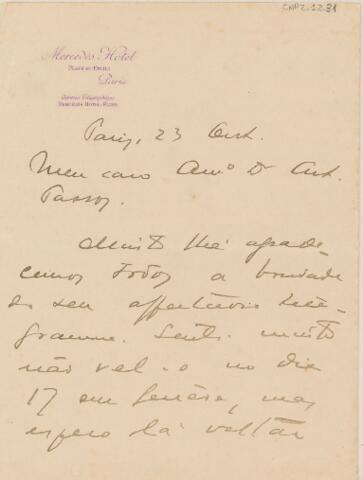 CNPZ.1.2.81
Mercedès Hotel
Place de l'Etoile
Paris
Adresse Télégraphique
Mercedes Hotel-Paris
Paris, 23 Out.
Meu caro Amº Dr Ant.
Passos.
Muito lhe agrade-
cemos todos a bondade
do seu affectuoso tele-
gramma. Senti muito
não vel-o no dia
17 em Genève, mas
espero lá voltar